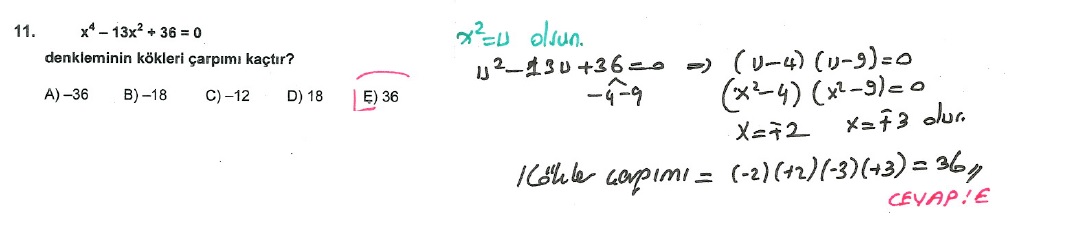 11. x⁴ – 13x² + 36 = 0
denkleminin kökleri çarpımı kaçtır?
A) –36 B) –18 C) –12 D) 18 E) 36
x²=u olsun.
u²–13u+36=0 ⇒ (u–4) (u–9)=0
–4 –9
(x²–4) (x²–9)=0
x=∓2 x=∓3 olur.
Kökler çarpımı = (-2)(+2)(-3)(+3) = 36,,
CEVAP: E